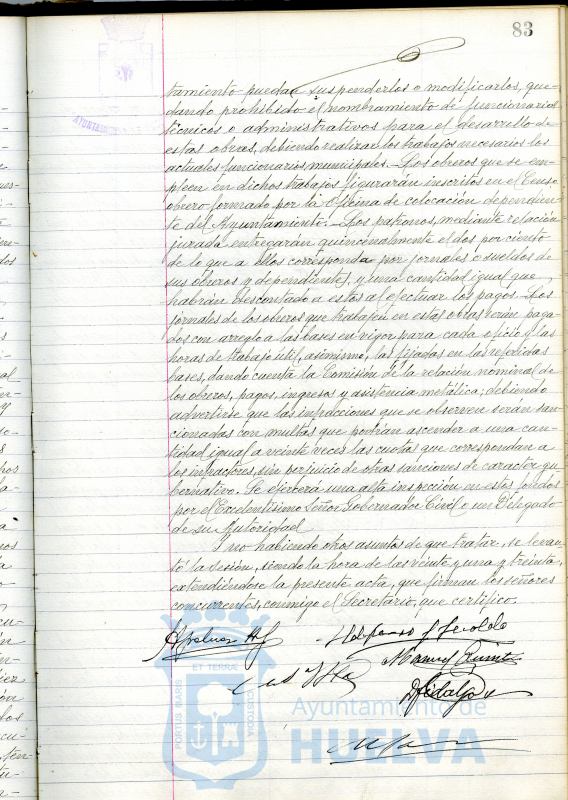 83
tamiento puedan suspenderlos o modificarlos, que-
dando prohibido el nombramiento de funcionarios
técnicos o administrativos para el desarrollo de
estas obras, debiendo realizar los trabajos necesarios los
actuales funcionarios municipales.- Los obreros que se em-
pleen en dichos trabajos figurarán inscritos en el Censo
obrero formado por la Oficina de colocación dependien-
te del Ayuntamiento.- Los patronos, mediante relación
jurada entregarán quincenalmente el dos por ciento
de lo que a ellos corresponda por jornales o sueldos de
sus obreros y dependientes, y una cantidad igual que
habrán descontado a estos al efectuar los pagos.- Los
jornales de los obreros que trabajen en estas obras serán paga-
dos con arreglo a las bases en vigor para cada oficio y las
horas de trabajo útil, asimismo, las fijadas en las referidas
bases, dando cuenta la Comisión de la relación nominal de
los obreros, pagos, ingresos y asistencia metálica; debiendo
advertirse que las infracciones que se observen serán san-
cionadas con multas que podrán ascender a una can-
tidad igual a veinte veces las cuotas que correspondan a
los infractores, sin perjuicio de otras sanciones de caracter gu-
bernativo. Se ejercerá una alta inspección en estos fondos
por el Excelentísimo Señor Gobernador Civil o un Delegado
de su Autoridad.
Y no habiendo otros asuntos de que tratar, se levan-
tó la sesión, siendo la hora de las veinte y una y treinta,
extendiéndose la presente acta, que firman los señores
concurrentes, conmigo el Secretario, que certifico.
Manuel
Hidalgo
ET TERRÆ
PORTUS MARIS
CUSTODIA
Ayuntamiento de
HUELVA